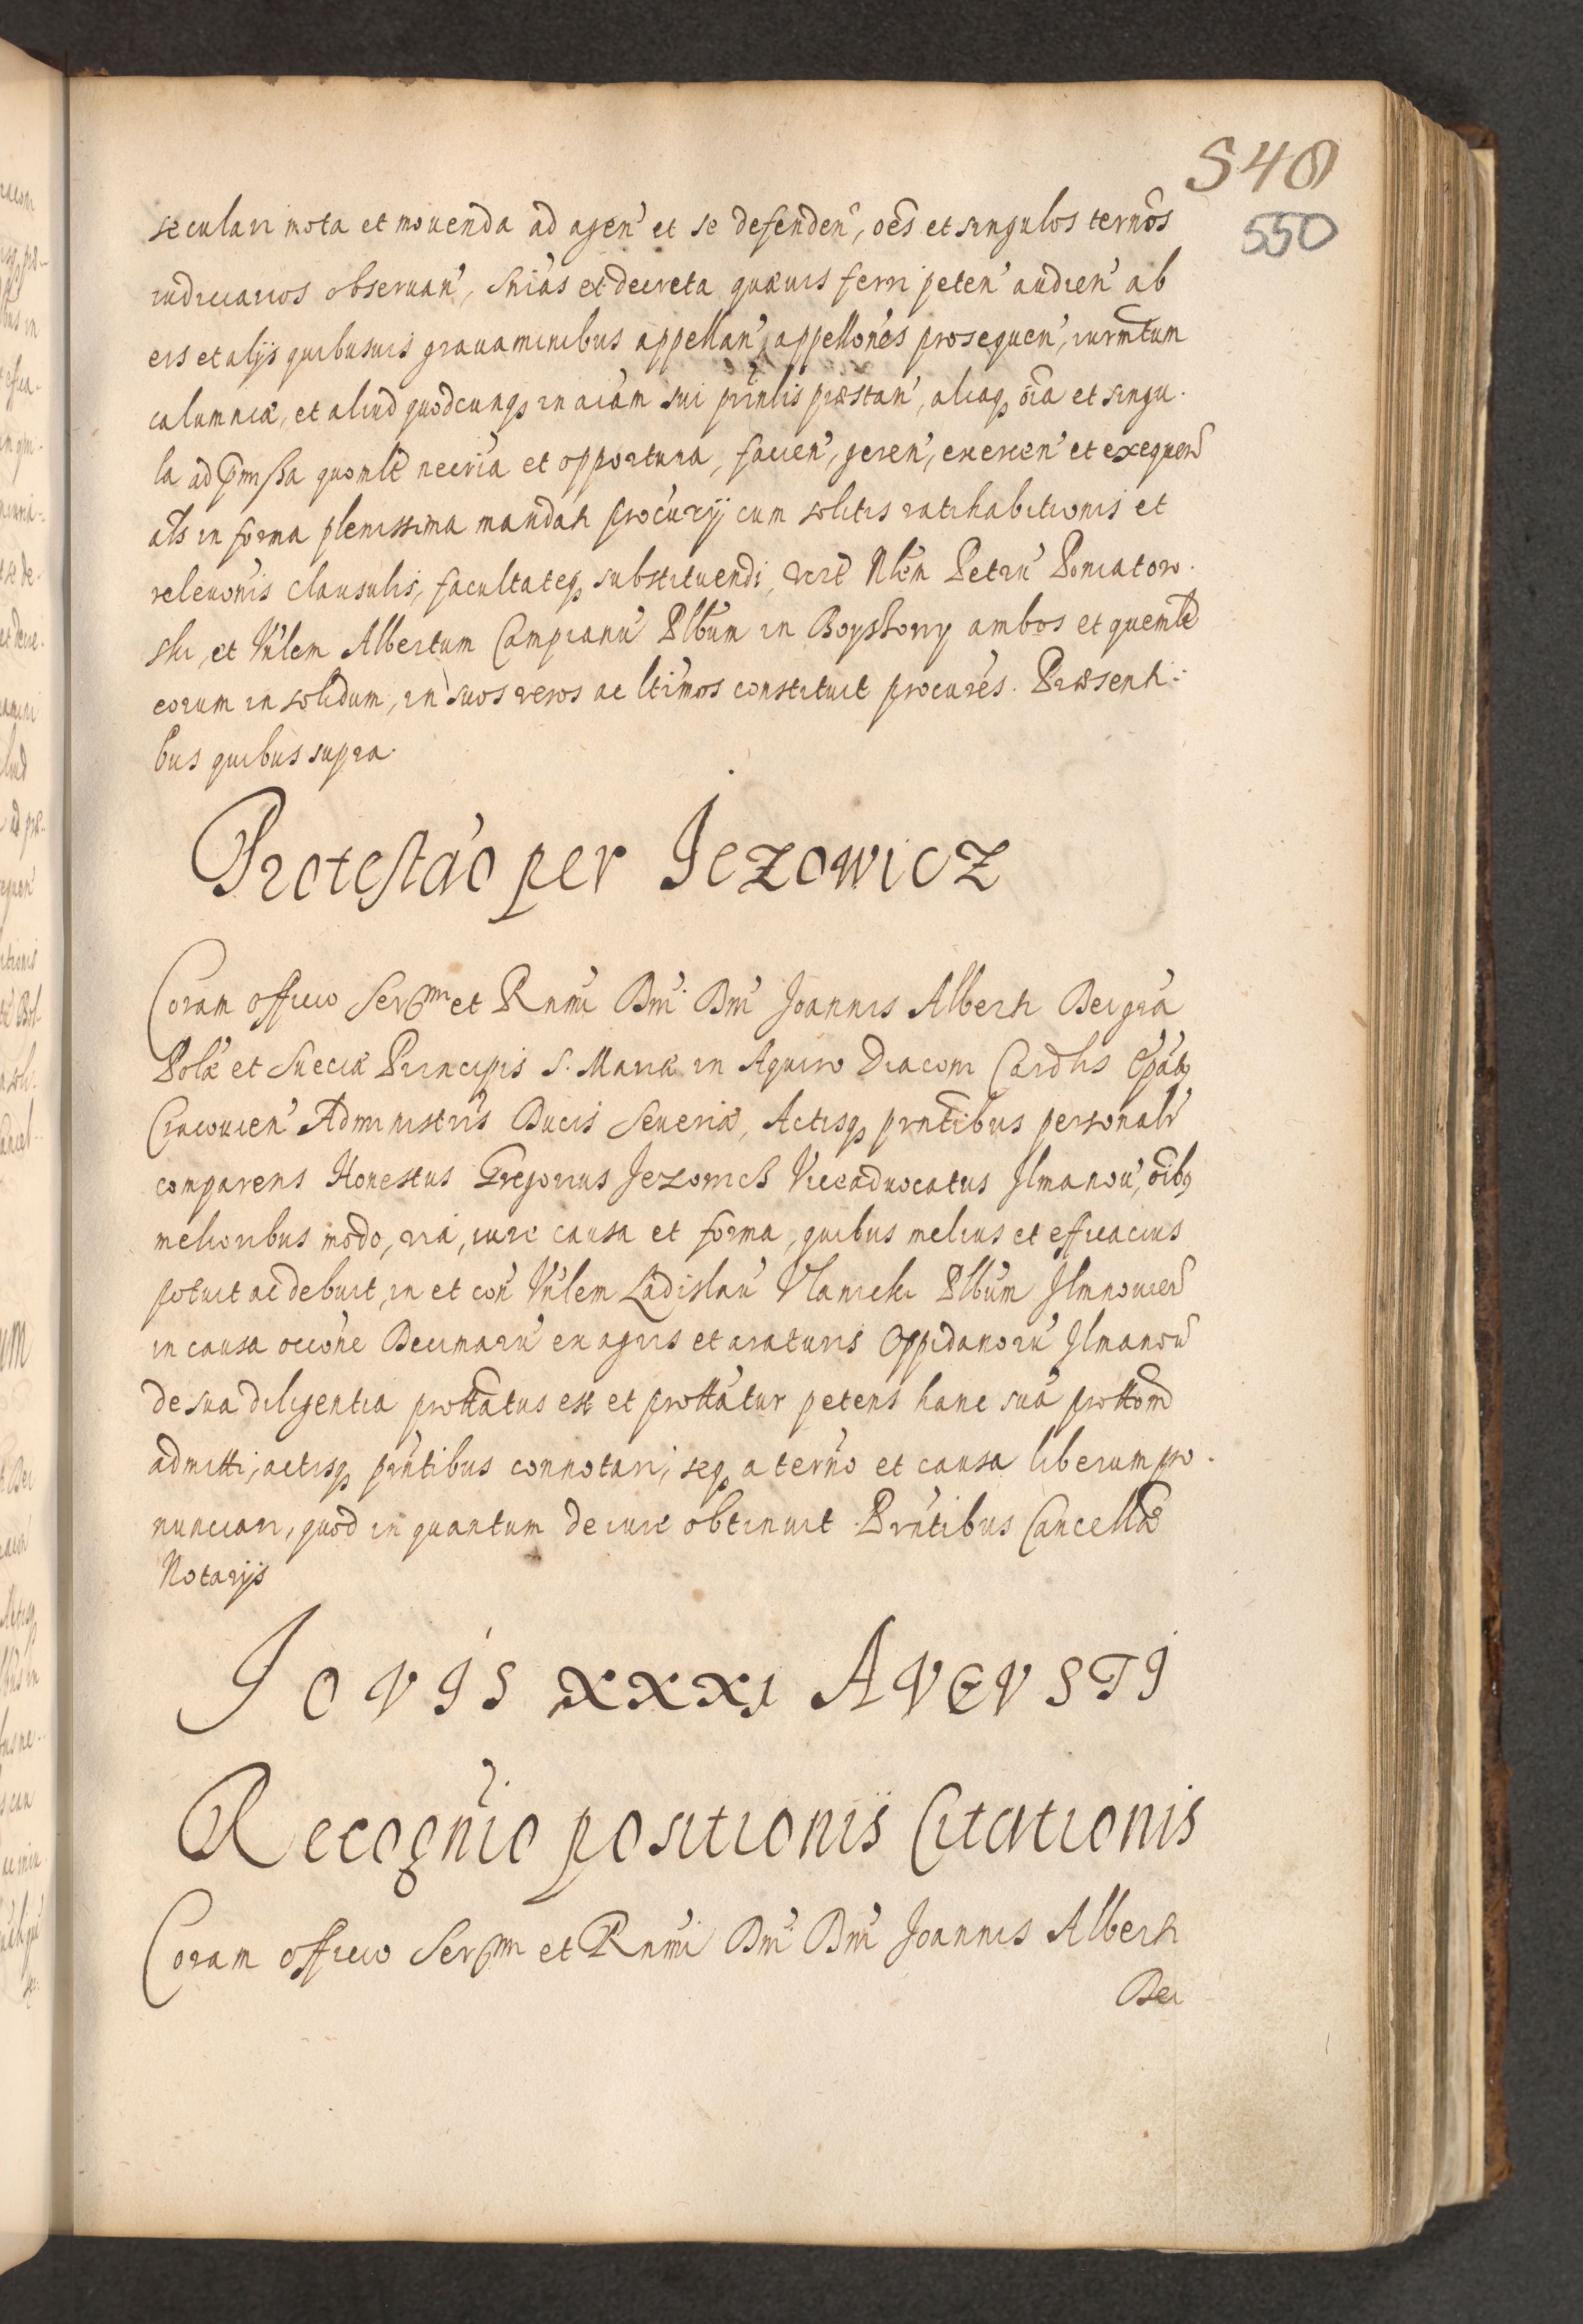 548
550
seculari mota et mouenda ad agen' et se defenden', oẽs et singulos termõs
iudiciarios obseruan', sñias et decreta quæuis ferri peten' audien' ab
eis et alijs quibusuis grauaminibus appellan', appellones prosequen', iurmtum
calumniæ, et aliud quodcunq3 in aiam sui prinlis præstan', aliaq3 oia et singu-
la ad pmissa quomlt necria et opportuna, facien', geren', exercen' et exequen'
als in forma plenissima mandati procurij cum solitis ratihabitionis et
releuonis clausulis, facultateq3 substituendi, vizt Nlem Petru' Poniatow-
ski, et Vnlem Albertum Campianu' Plbum in Boyslowy ambos et quemlt
eorum in solidum, in suos veros ac ltimos constituit procures. Præsenti-
bus quibus supra.
Protestao per Jezowicz
Coram officio Sermi et Rnmi Dni Dni Joannis Alberti Dei gra
Polæ et Sueciæ Principis S. Mariæ in Aquiro Diaconi Cardlis Epatus
Cracouien' Administris Ducis Seueriæ, Actisq3 prntibus personalr
comparens Honestus Gregorius Jezowich Viceaduocatus Jlmanou', oibus
melioribus modo, via, iure causa et forma, quibus melius et efficacius
potuit ac debuit, in et con' Vnlem Ladislau' Vlanicki Plbum Jlmnouien'
in causa occone Decimaru' ex agris et araturis Oppidanoru' Jlmanou'
de sua diligentia prottatus est et prottatur petens hanc sua prottom
admitti, actisq3 prntibus connotari, seq3 a termo et causa liberum pro-
nunciari, quod in quantum de iure obtinuit Prntibus Cancellæ
Notarijs
JOVJS XXXI AVGVSTJ
Recognio positionis Citationis
Coram officio Sermi et Rnmi Dni Dni Joannis Alberti
Dei